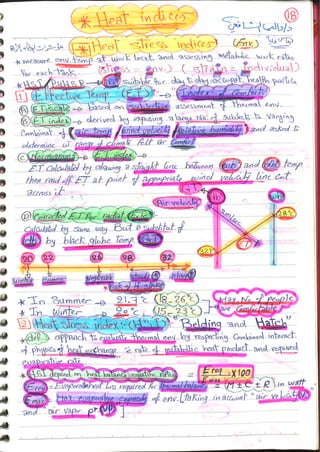 18
* Heat indices
* Heat stress indices (Env)
* measure env. temp at work locat. and assessing metabolic work rates
For each Task. (stress = env.) (strain = individual)
suitable for day to day occupat. health practice
1 Effective Temp (ET) → Index of comfort
A ET scale → based on subjective assessment of thermal env.
B ET index → derived by exposing a large No. of subjects to varying
Combinat. of air temp / wind velocity / Relative humidity and asked to
determine range of climate felt as comfort
C Normal → ET index →
ET Calculated by drawing a straight line between wb and db temp
then read off ET at point if appropriate wind velocity line cut
across it
Air velocity
D Corrected ET For radiat.
Calculated by same way But substitut. of
db by black globe Temp.
20 22 26 28 32
* In Summer → 21.7 c (18-26 c)
* In winter → 20 c (15-23 c)
Max No of people
are comfortable
2 Heat Stress index "Belding and Hatch"
* def: approach to evaluate thermal env. by respecting Combined interact.
of physics of heat exchange & rate of metabolic heat product. and required
evaporative rate
* HSI depend on heat balance equation rates = E req / E max X100
E req = Evaporative heat loss required for thermal balance = M ± C ± R in watt
E max = Max evaporative capacity of env. (taking in account "air velocity
and air vapor pr (VP)